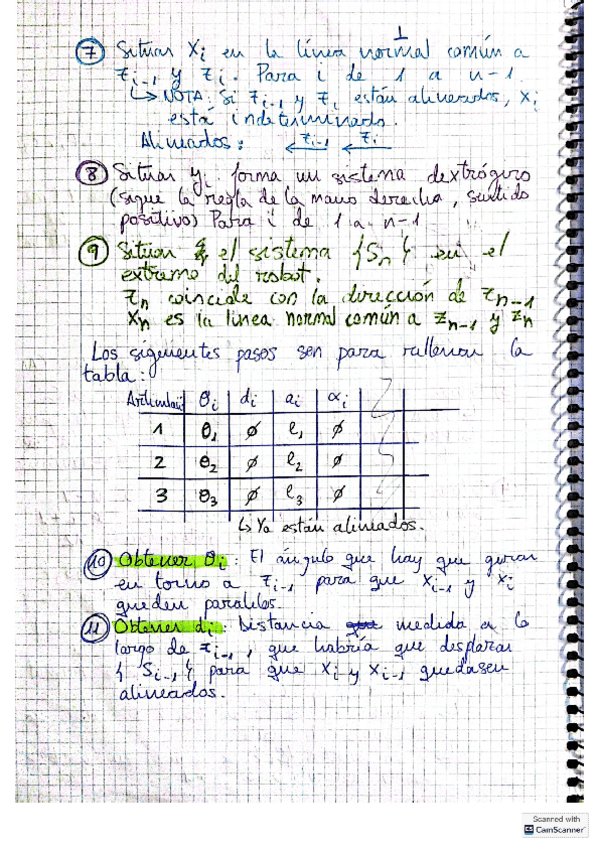 ⊥
⑦ Situar Xi en la línea normal común a
Zi-1 y Zi. Para i de 1 a n-1
↳ NOTA: Si Zi-1 y Zi están alineados, Xi
está indeterminado.
Alineados: Zi-1 Zi
⑧ Situar Yi forma un sistema dextrógiro
(sigue la regla de la mano derecha, sentido
positivo) Para i de 1 a n-1
⑨ Situar el sistema {Sn} en el
extremo del robot.
Zn coincide con la dirección de Zn-1
Xn es la línea normal común a Zn-1 y Zn
Los siguientes pasos son para rellenar la
tabla:
θi di ai αi
1 θ1 ∅ l1 ∅
2 θ2 ∅ l2 ∅
3 θ3 ∅ l3 ∅
↳ Ya están alineados.
⑩ Obtener θi: El ángulo que hay que girar
en torno a Zi-1 para que Xi-1 y Xi
queden paralelos.
⑪ Obtener di: Distancia medida a lo
largo de Zi-1, que habría que desplazar
{Si-1} para que Xi y Xi-1 quedasen
alineados.
Scanned with
CS CamScanner